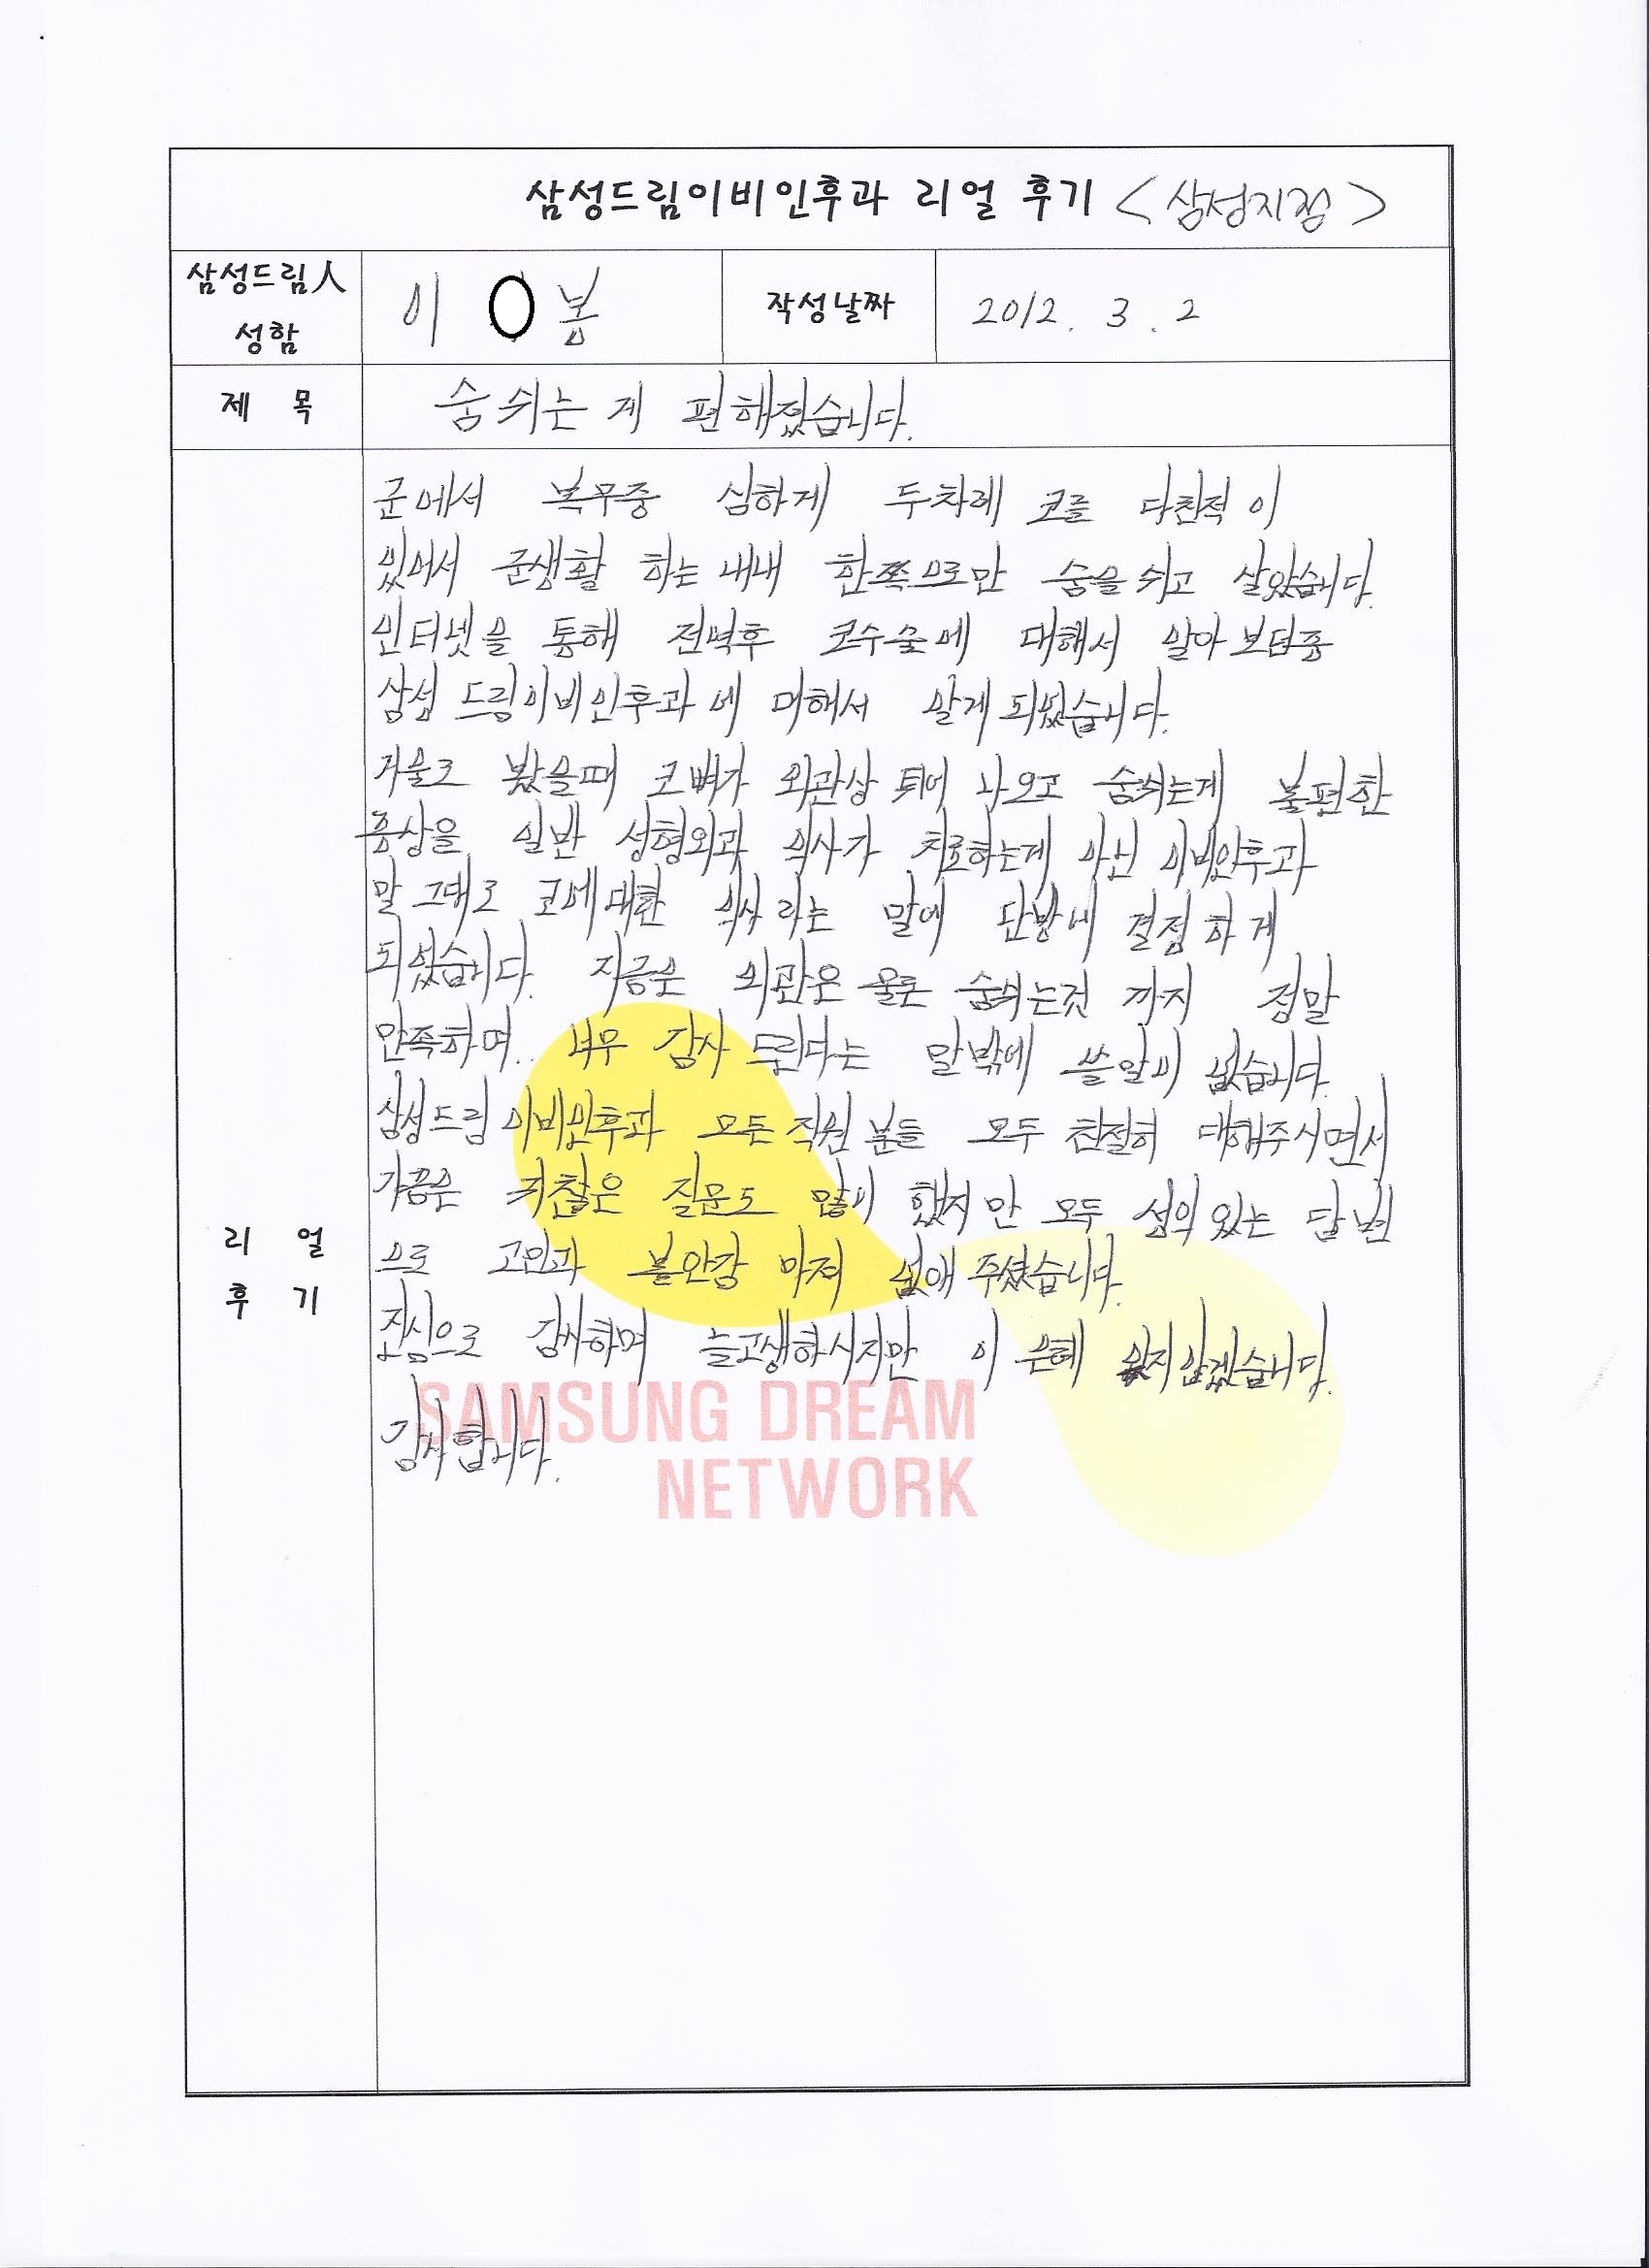 삼성드림이비인후과 리얼 후기 <삼성지점>
삼성드림人 성함
이 봄
작성날짜
2012. 3. 2
제 목
숨 쉬는 게 편해졌습니다.
군에서 복무중 심하게 두차례 코를 다친적이
있어서 군생활 하는 내내 한쪽으로만 숨을 쉬고 살았습니다.
인터넷을 통해 전역후 코수술에 대해서 알아보던중
삼성 드림이비인후과에 대해서 알게 되었습니다.
거울로 봤을때 코뼈가 외관상 튀어 나오고 숨쉬는게 불편한
증상을 일반 성형외과 의사가 치료하는게 아닌 이비인후과
말 그대로 코에 대한 의사 라는 말에 단방에 결정하게
되었습니다. 지금은 외관은 물론 숨쉬는것 까지 정말
만족하며.. 너무 감사 드린다는 말밖에 쓸말이 없습니다.
삼성드림 이비인후과 모든 직원 분들 모두 친절히 대해주시면서
가끔은 귀찮은 질문도 많이 했지만 모두 성의 있는 답변
으로 고민과 불안감 마저 없애 주셨습니다.
진심으로 감사하며 늘고생하시지만 이 은혜 잊지않겠습니다.
감사합니다.
리 얼
후 기
SAMSUNG DREAM
NETWORK